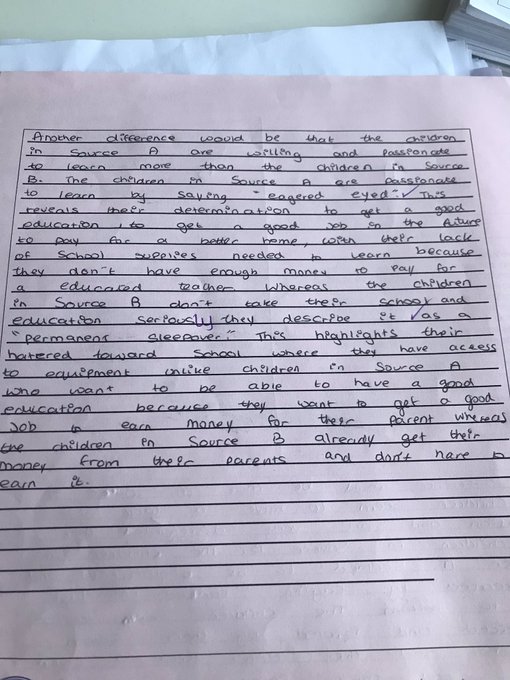 Another difference would be that the children
in Source A are willing and passionate
to learn more than the children in Source
B. The children in Source A are passionate
to learn by saying "eagered eyed". This
reveals their determination to get a good
education, to get a good job in the future
to pay for a better home, with their lack
of school supplies needed to learn because
they don't have enough money to pay for
a educated teacher. Whereas the children
in Source B don't take their school and
education seriously they describe it as a
"permanent sleepover." This highlights their
hatered toward school where they have access
to equipment unlike children in Source A
who want to be able to have a good
education because they want to get a good
job to earn money for their parent whereas
the children in Source B already get their
money from their parents and don't have to
earn it.